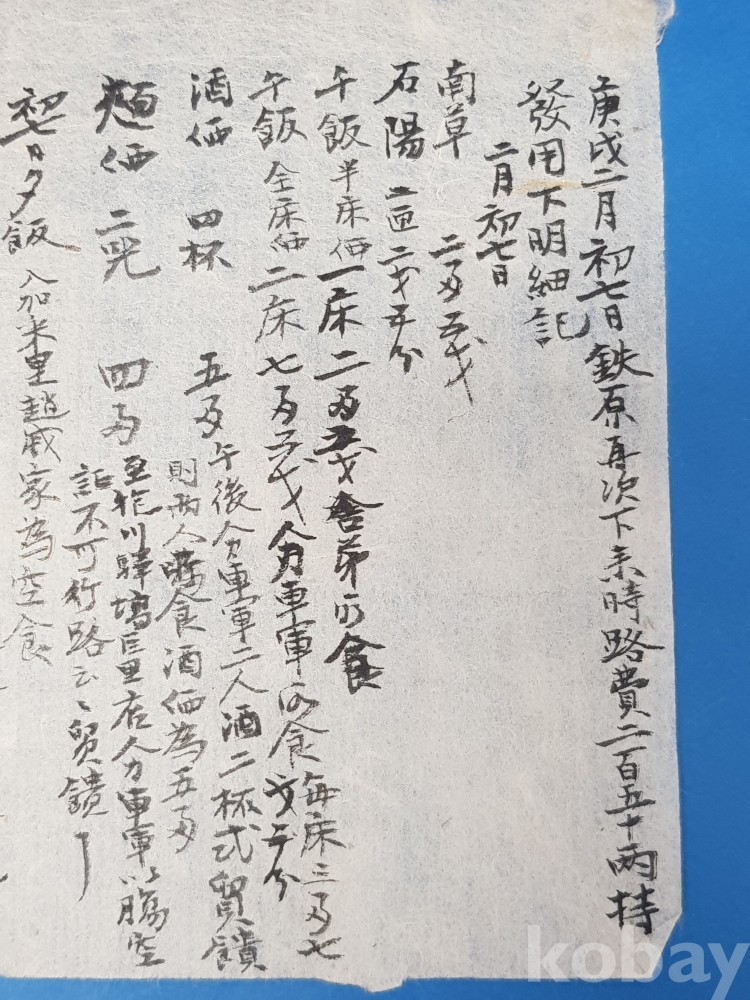 庚戌二月初七日鉄原再次下來時路費二百五十兩持
發用下明細記
二月初七日
南草 二戔五分
石陽 二匣二戔五分
午飯半床価一床二戔五分舍弟所食
午飯全床価二床七戔五分人力車軍所食每床三戔七
分五分
酒価 四杯 五戔午後人力車軍二人酒二杯式貿饋
則兩人 食酒価為五戔
麵価 二器 四戔至 川驛 巨里店人力車軍以腸空
不可行路云々貿饋
初七日夕飯 加米里趙戚家為空食
kobay